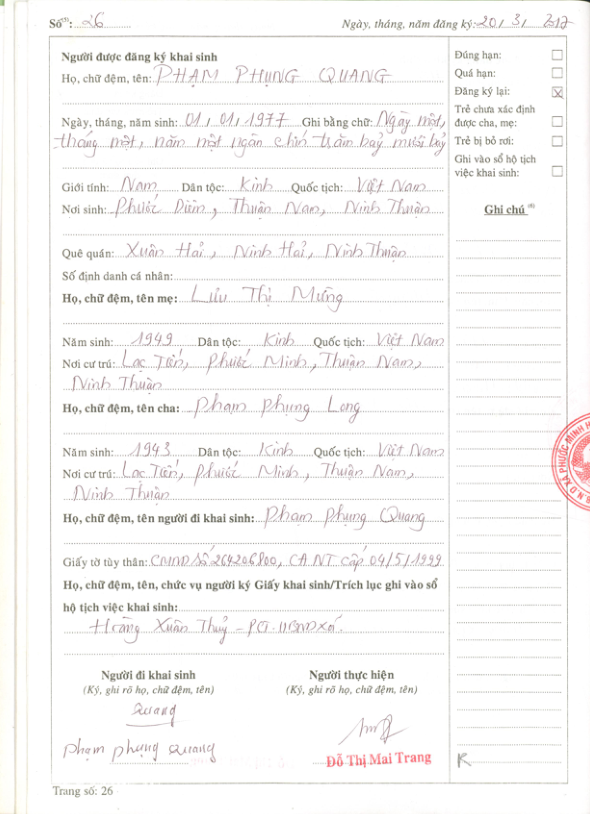 Số⁽⁵⁾: 26
Ngày, tháng, năm đăng ký: 20 / 3 / 2017
Người được đăng ký khai sinh
Họ, chữ đệm, tên: PHẠM PHỤNG QUANG
Ngày, tháng, năm sinh: 01 / 01 / 1977 Ghi bằng chữ: Ngày một,
tháng một, năm một ngàn chín trăm bảy mươi bảy
Giới tính: Nam Dân tộc: Kinh Quốc tịch: Việt Nam
Nơi sinh: Phước Diêm, Thuận Nam, Ninh Thuận
Quê quán: Xuân Hải, Ninh Hải, Ninh Thuận
Số định danh cá nhân:
Họ, chữ đệm, tên mẹ: Lưu Thị Mừng
Năm sinh: 1949 Dân tộc: Kinh Quốc tịch: Việt Nam
Nơi cư trú: Lạc Tiến, Phước Minh, Thuận Nam,
Ninh Thuận
Họ, chữ đệm, tên cha: Phạm Phụng Long
Năm sinh: 1943 Dân tộc: Kinh Quốc tịch: Việt Nam
Nơi cư trú: Lạc Tiến, Phước Minh, Thuận Nam,
Ninh Thuận
Họ, chữ đệm, tên người đi khai sinh: Phạm Phụng Quang
Giấy tờ tùy thân: CMND Số 264206800, CA.NT cấp 04/5/1999
Họ, chữ đệm, tên, chức vụ người ký Giấy khai sinh/Trích lục ghi vào sổ
hộ tịch việc khai sinh:
Hoàng Xuân Thuỷ - PCT.UBND xã.
Người đi khai sinh
(Ký, ghi rõ họ, chữ đệm, tên)
Quang
Phạm Phụng Quang
Người thực hiện
(Ký, ghi rõ họ, chữ đệm, tên)
Đỗ Thị Mai Trang
Đúng hạn:
Quá hạn:
Đăng ký lại: X
Trẻ chưa xác định
được cha, mẹ:
Trẻ bị bỏ rơi:
Ghi vào sổ hộ tịch
việc khai sinh:
Ghi chú ⁽⁶⁾
U.B.N.D XÃ PHƯỚC MINH
Trang số: 26